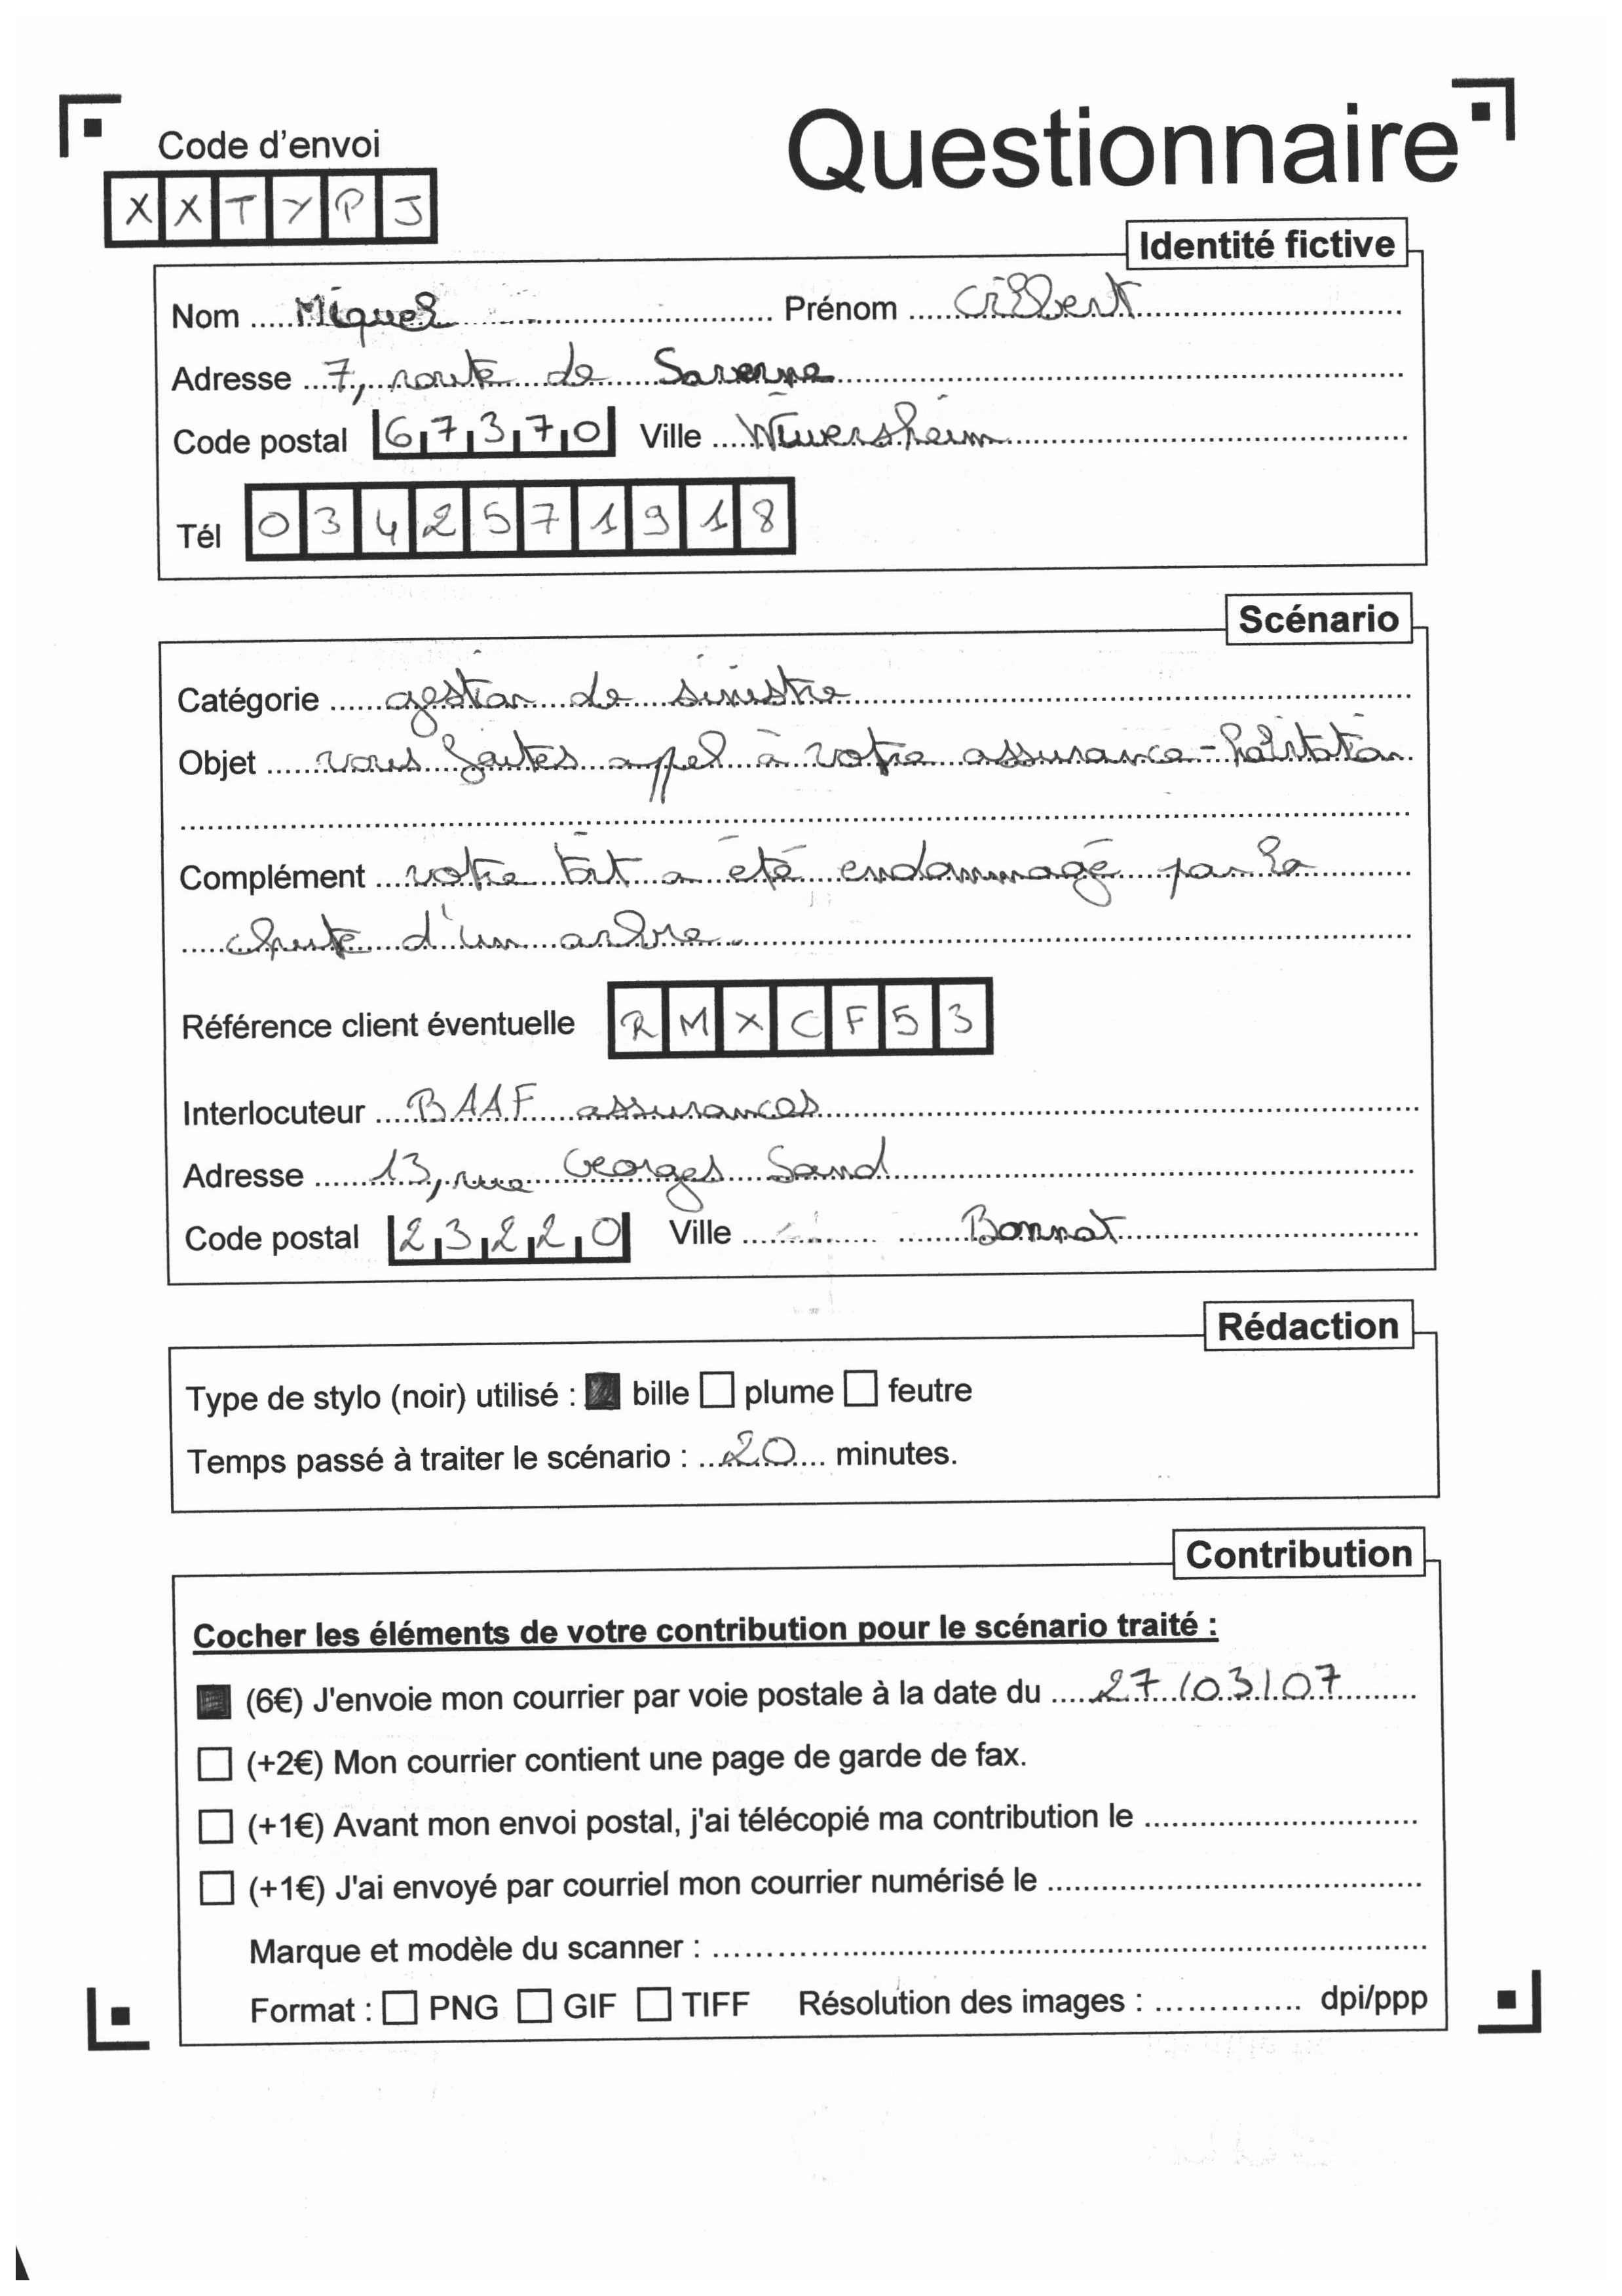 Questionnaire
Code d'envoi
XXTYPJ
Identité fictive
Nom Miquel Prénom Gilbert
Adresse 7, route de Saverne
Code postal 67370 Ville Wiwersheim
Tél 0342571918
Scénario
Catégorie gestion de sinistre
Objet vous faites appel à votre assurance-habitation
Complément votre toit a été endommagé par la
chute d'un arbre.
Référence client éventuelle RMXCF53
Interlocuteur BAAF assurances
Adresse 13, rue Georges Sand
Code postal 23220 Ville Bonnat
Rédaction
Type de stylo (noir) utilisé : bille plume feutre
Temps passé à traiter le scénario : 20 minutes.
Contribution
Cocher les éléments de votre contribution pour le scénario traité :
(6€) J'envoie mon courrier par voie postale à la date du 27/03/07
(+2€) Mon courrier contient une page de garde de fax.
(+1€) Avant mon envoi postal, j'ai télécopié ma contribution le
(+1€) J'ai envoyé par courriel mon courrier numérisé le
Marque et modèle du scanner :
Format : PNG GIF TIFF Résolution des images : dpi/ppp